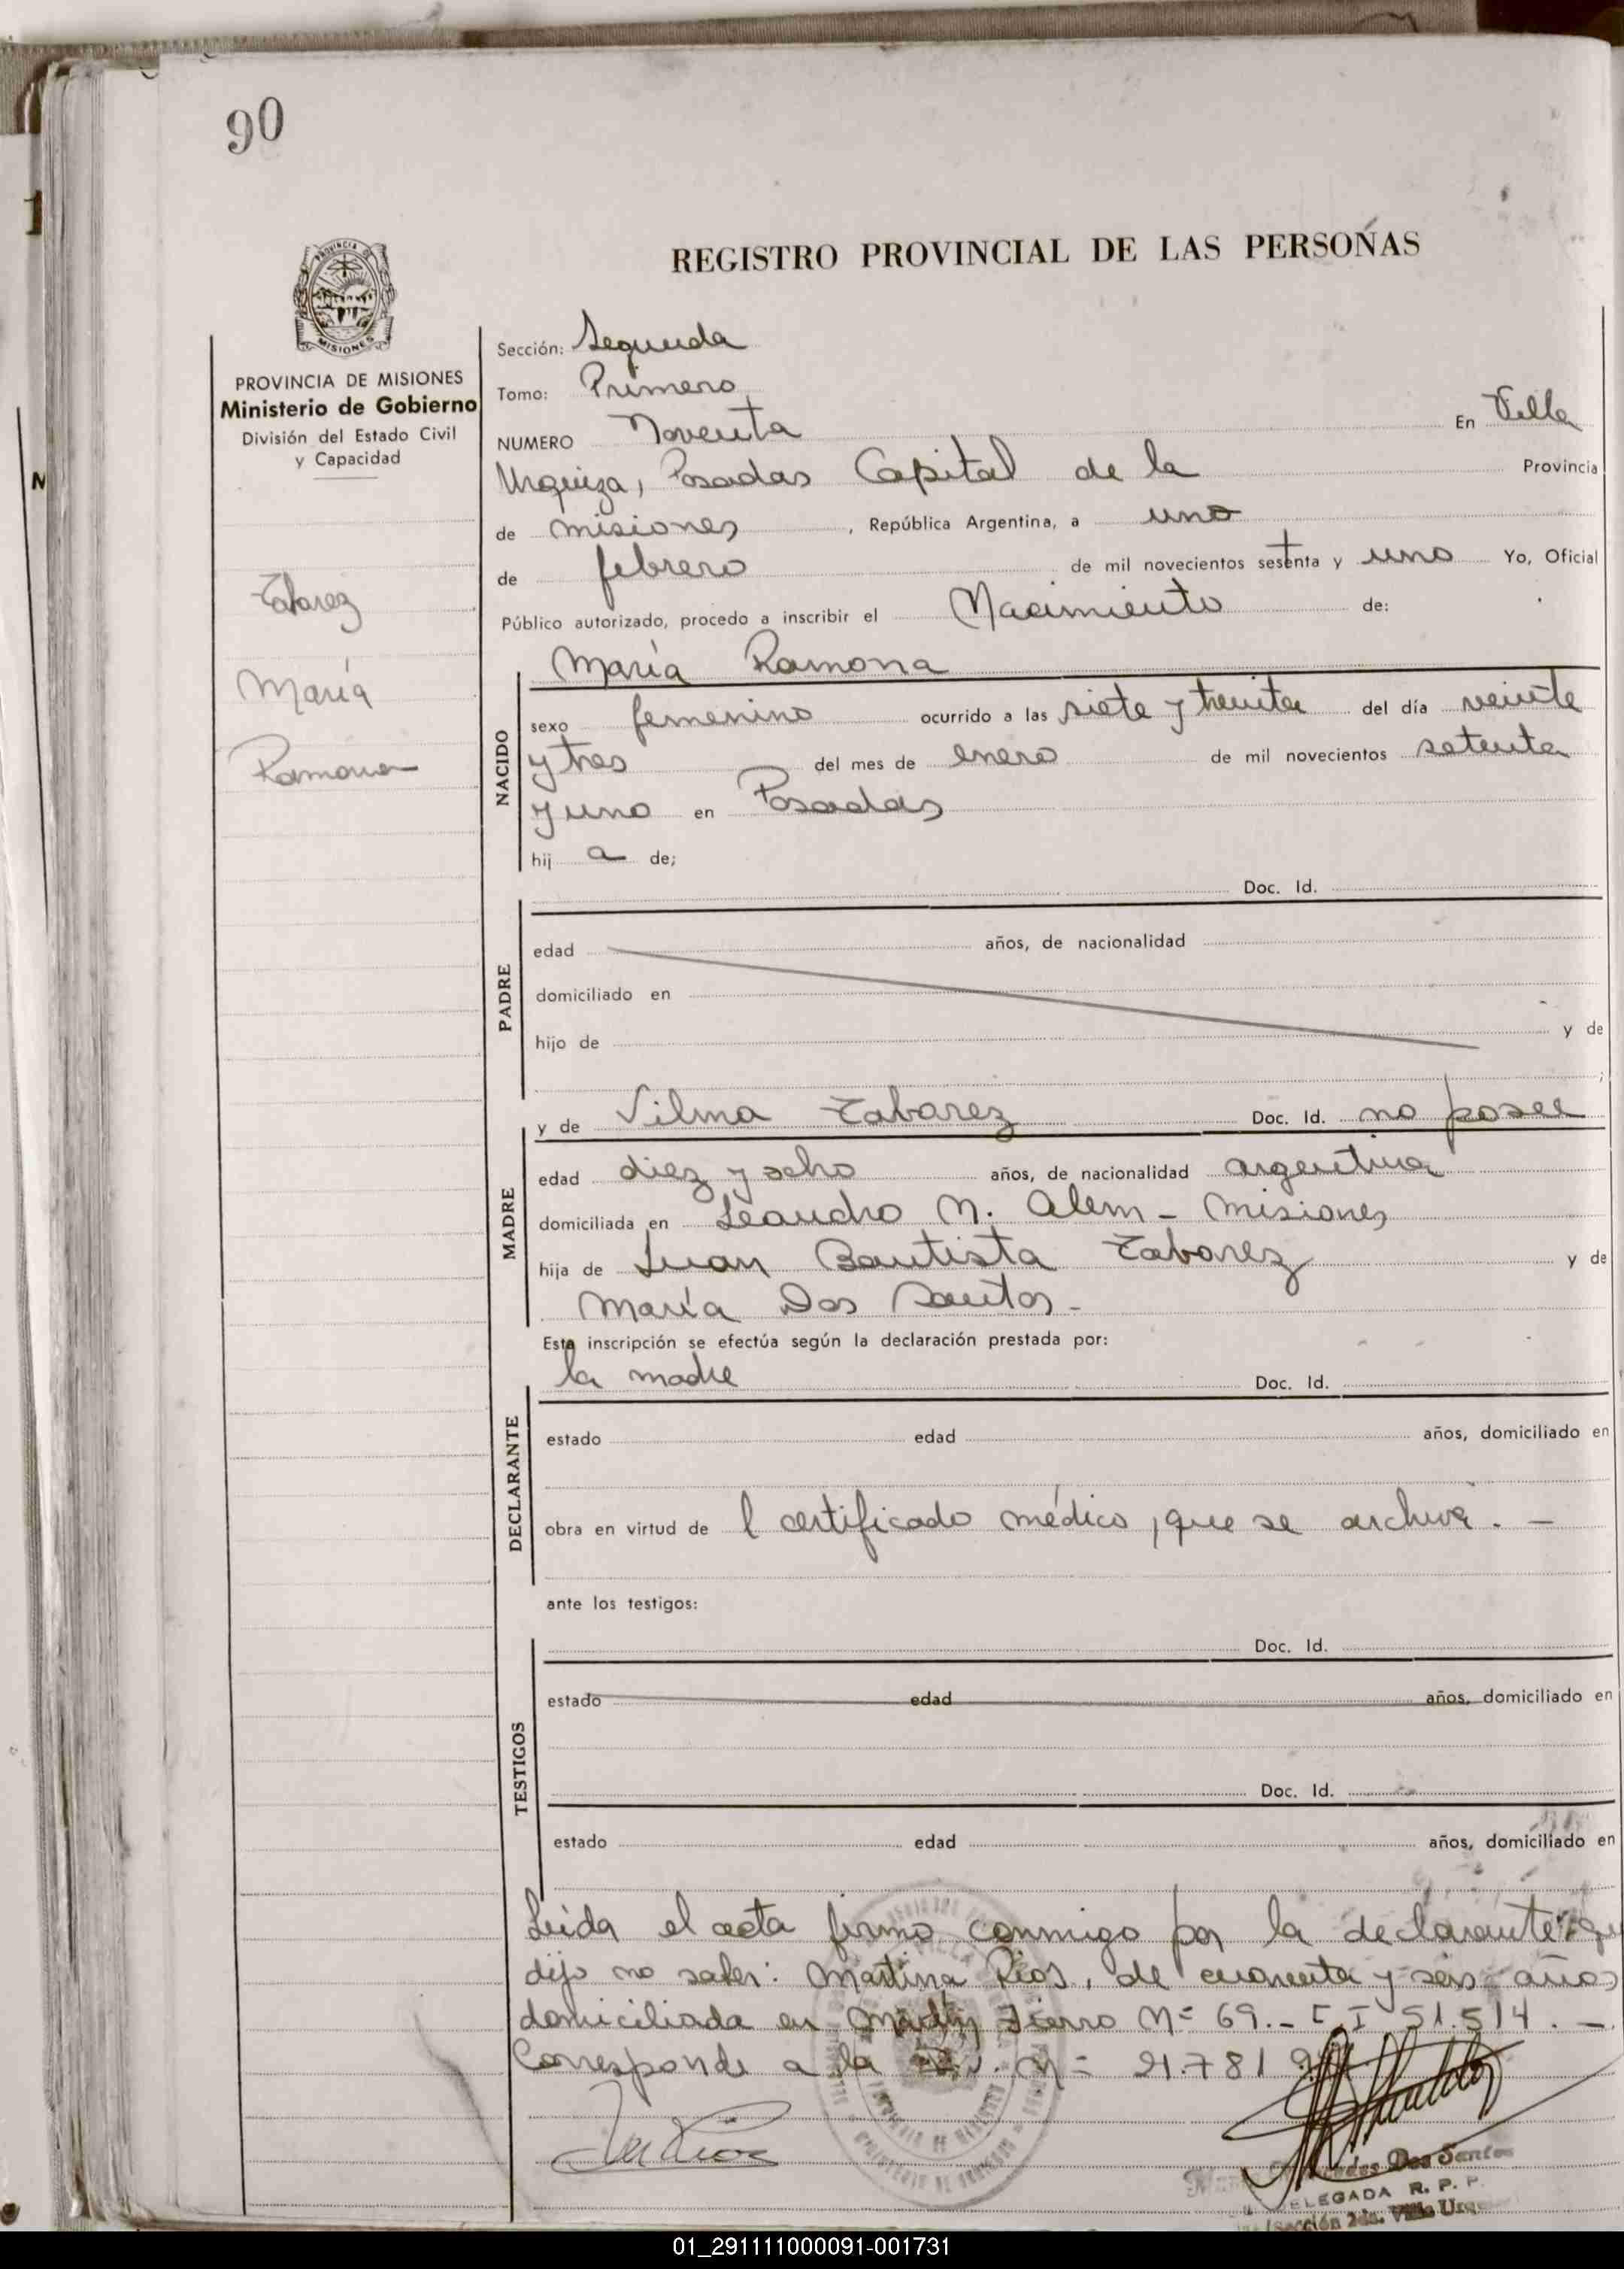 90
REGISTRO PROVINCIAL DE LAS PERSONAS
PROVINCIA DE MISIONES
MISIONES
PROVINCIA DE MISIONES
Ministerio de Gobierno
División del Estado Civil
y Capacidad
Tabarez
María
Ramona
Sección: Segunda
Tomo: Primero
NUMERO Noventa En Villa
Urquiza, Posadas Capital de la Provincia
de misiones, República Argentina, a uno
de febrero de mil novecientos setenta y uno Yo, Oficial
Público autorizado, procedo a inscribir el Nacimiento de:
María Ramona
NACIDO
sexo femenino ocurrido a las siete y treinta del día veinte
y tres del mes de enero de mil novecientos setenta
y uno en Posadas
hij a de;
Doc. Id.
PADRE
edad años, de nacionalidad
domiciliado en
hijo de y de
;
y de Vilma Tabarez Doc. Id. no posee
MADRE
edad diez y ocho años, de nacionalidad argentina
domiciliada en Leandro N. Alem - Misiones
hija de Juan Bautista Tabarez y de
María Dos Santos -
Esta inscripción se efectúa según la declaración prestada por:
la madre Doc. Id.
DECLARANTE
estado edad años, domiciliado en
obra en virtud de l certificado médico, que se archiva. -
ante los testigos:
Doc. Id.
TESTIGOS
estado edad años, domiciliado en
Doc. Id.
estado edad años, domiciliado en
Leída el acta firma conmigo por la declarante que
dijo no saber: Martina Rios, de cuarenta y seis años
domiciliada en Martín Fierro Nº 69. - C.I 51.514. -
Corresponde a la Nº 21.781.9
Dos Santos
DELEGADA R. P. P.
Sección 2da. Villa Urq
01_291111000091-001731